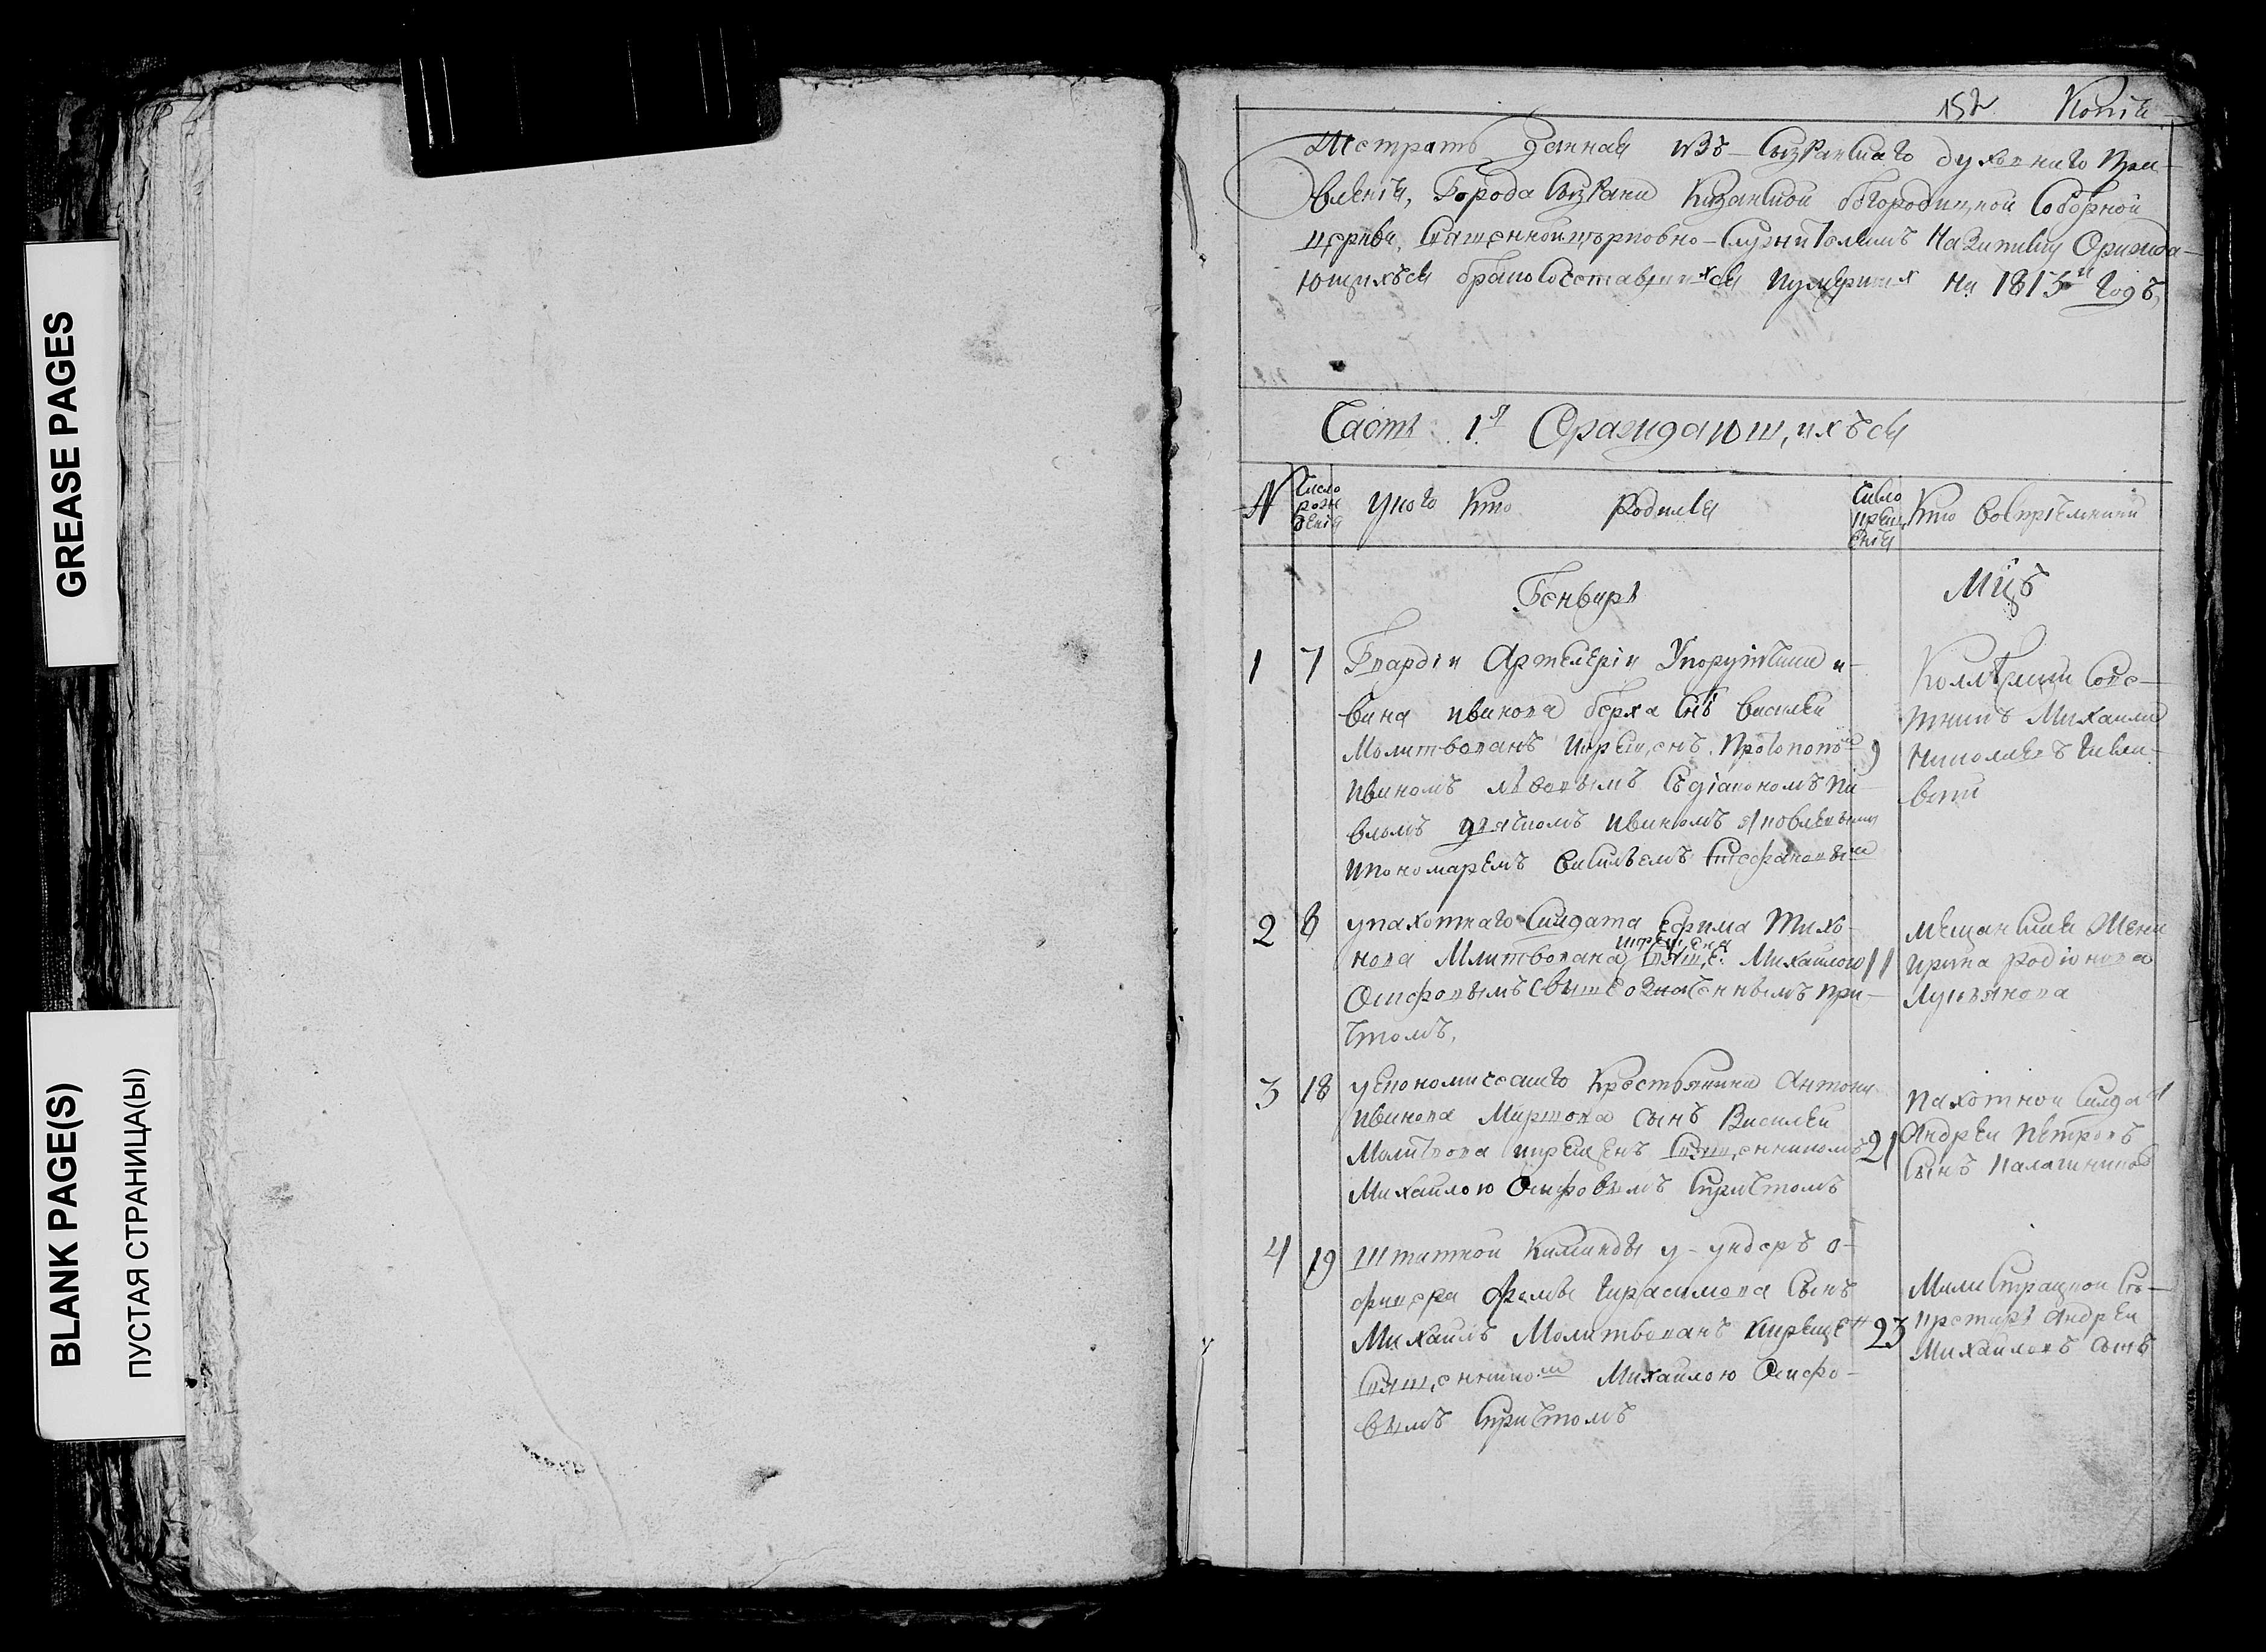 GREASE PAGES
BLANK PAGE(S)
ПУСТАЯ СТРАНИЦА(Ы)
152 Копія
данная изъ Сызранскаго духовнаго пра-
вленія, Города Сызрани Казанской богородицкой Соборной
церкви, Священноицерковно-Служителямъ На записку Оражда-
ющихъся бракосочетавшихся иумершихъ На 1815й Годъ,
Часть 1я Ораждающихъся
№
Число
рож
денія
Укого Кто родился
Число
креще
нія
Кто воспріемники
Генварь
Мцъ
1 7 Гвардіи Артилеріи
вана иванова берха Снъ василей
Молитвованъ икрещенъ Протопопомъ
иваномъ Съдіакономъ па-
вломъ дьячкомъ иваномъ яковлевымъ
ипономаремъ васильемъ Стефановымъ
9
Сове-
тникъ Михаила
Николаевъ
2 8 упахотнаго Салдата Ефима Тихо-
нова Млитвована икрещена Свящ: Михаилою
Осиповымъ Свышеозначеннымъ при-
чтомъ,
11
мещанская Жена
ирина родіонова
Лукьянова
3 18 уекономическаго крестьянина Антона
иванова Сынъ Василей
икрещенъ Священникомъ
Михаилою Осиповымъ Спричтомъ
21
Пахотной Салдатъ
Андрей Петровъ
Сынъ
4 19 Штатной Команды у-ундеръ о-
фицера Фомы Гирасимова Сынъ
Михаилъ Молитвованъ икрещен
Священником Михаилою Осипо-
вымъ Спричтомъ
23
Се-
кретарь Андрей
Михайловъ Сынъ